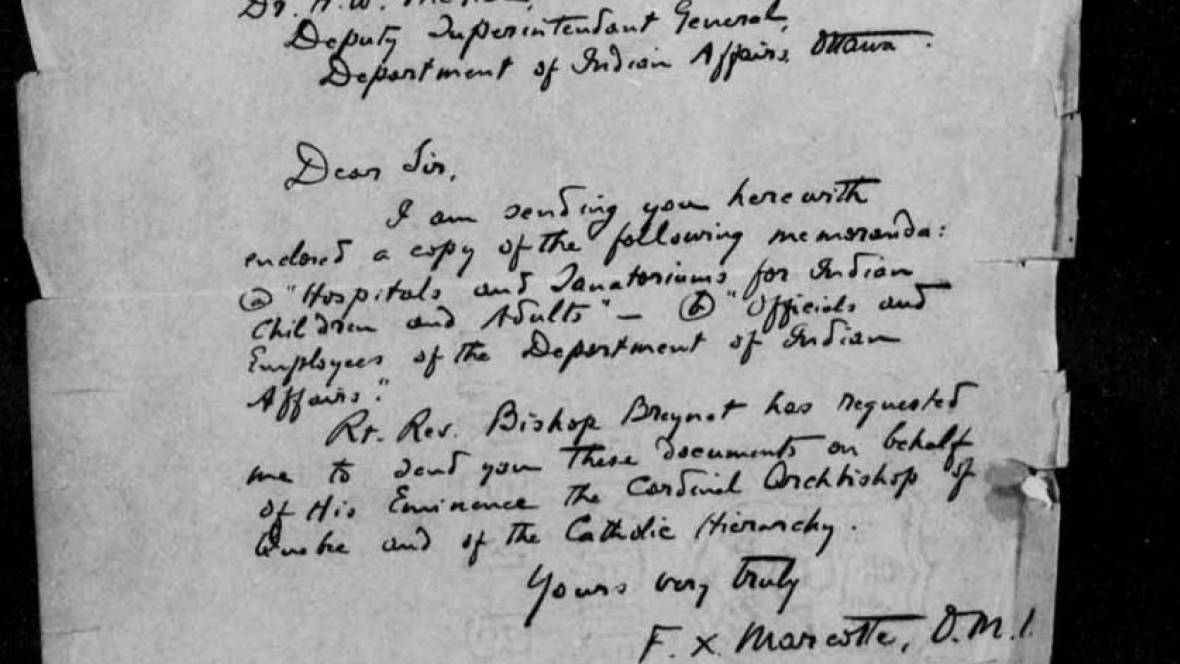 Dr. H. W.
Deputy Superintendant General,
Department of Indian Affairs, Ottawa.
Dear Sir,
I am sending you herewith
enclosed a copy of the following memoranda:
(a) "Hospitals and Sanatoriums for Indian
Children and Adults" — (b) "Officials and
Employees of the Department of Indian
Affairs".
Rt. Rev. Bishop Breynat has requested
me to send you these documents on behalf
of His Eminence the Cardinal Archbishop of
Quebec and of the Catholic Hierarchy.
Yours very truly
F. X. Marcotte, O.M.I.